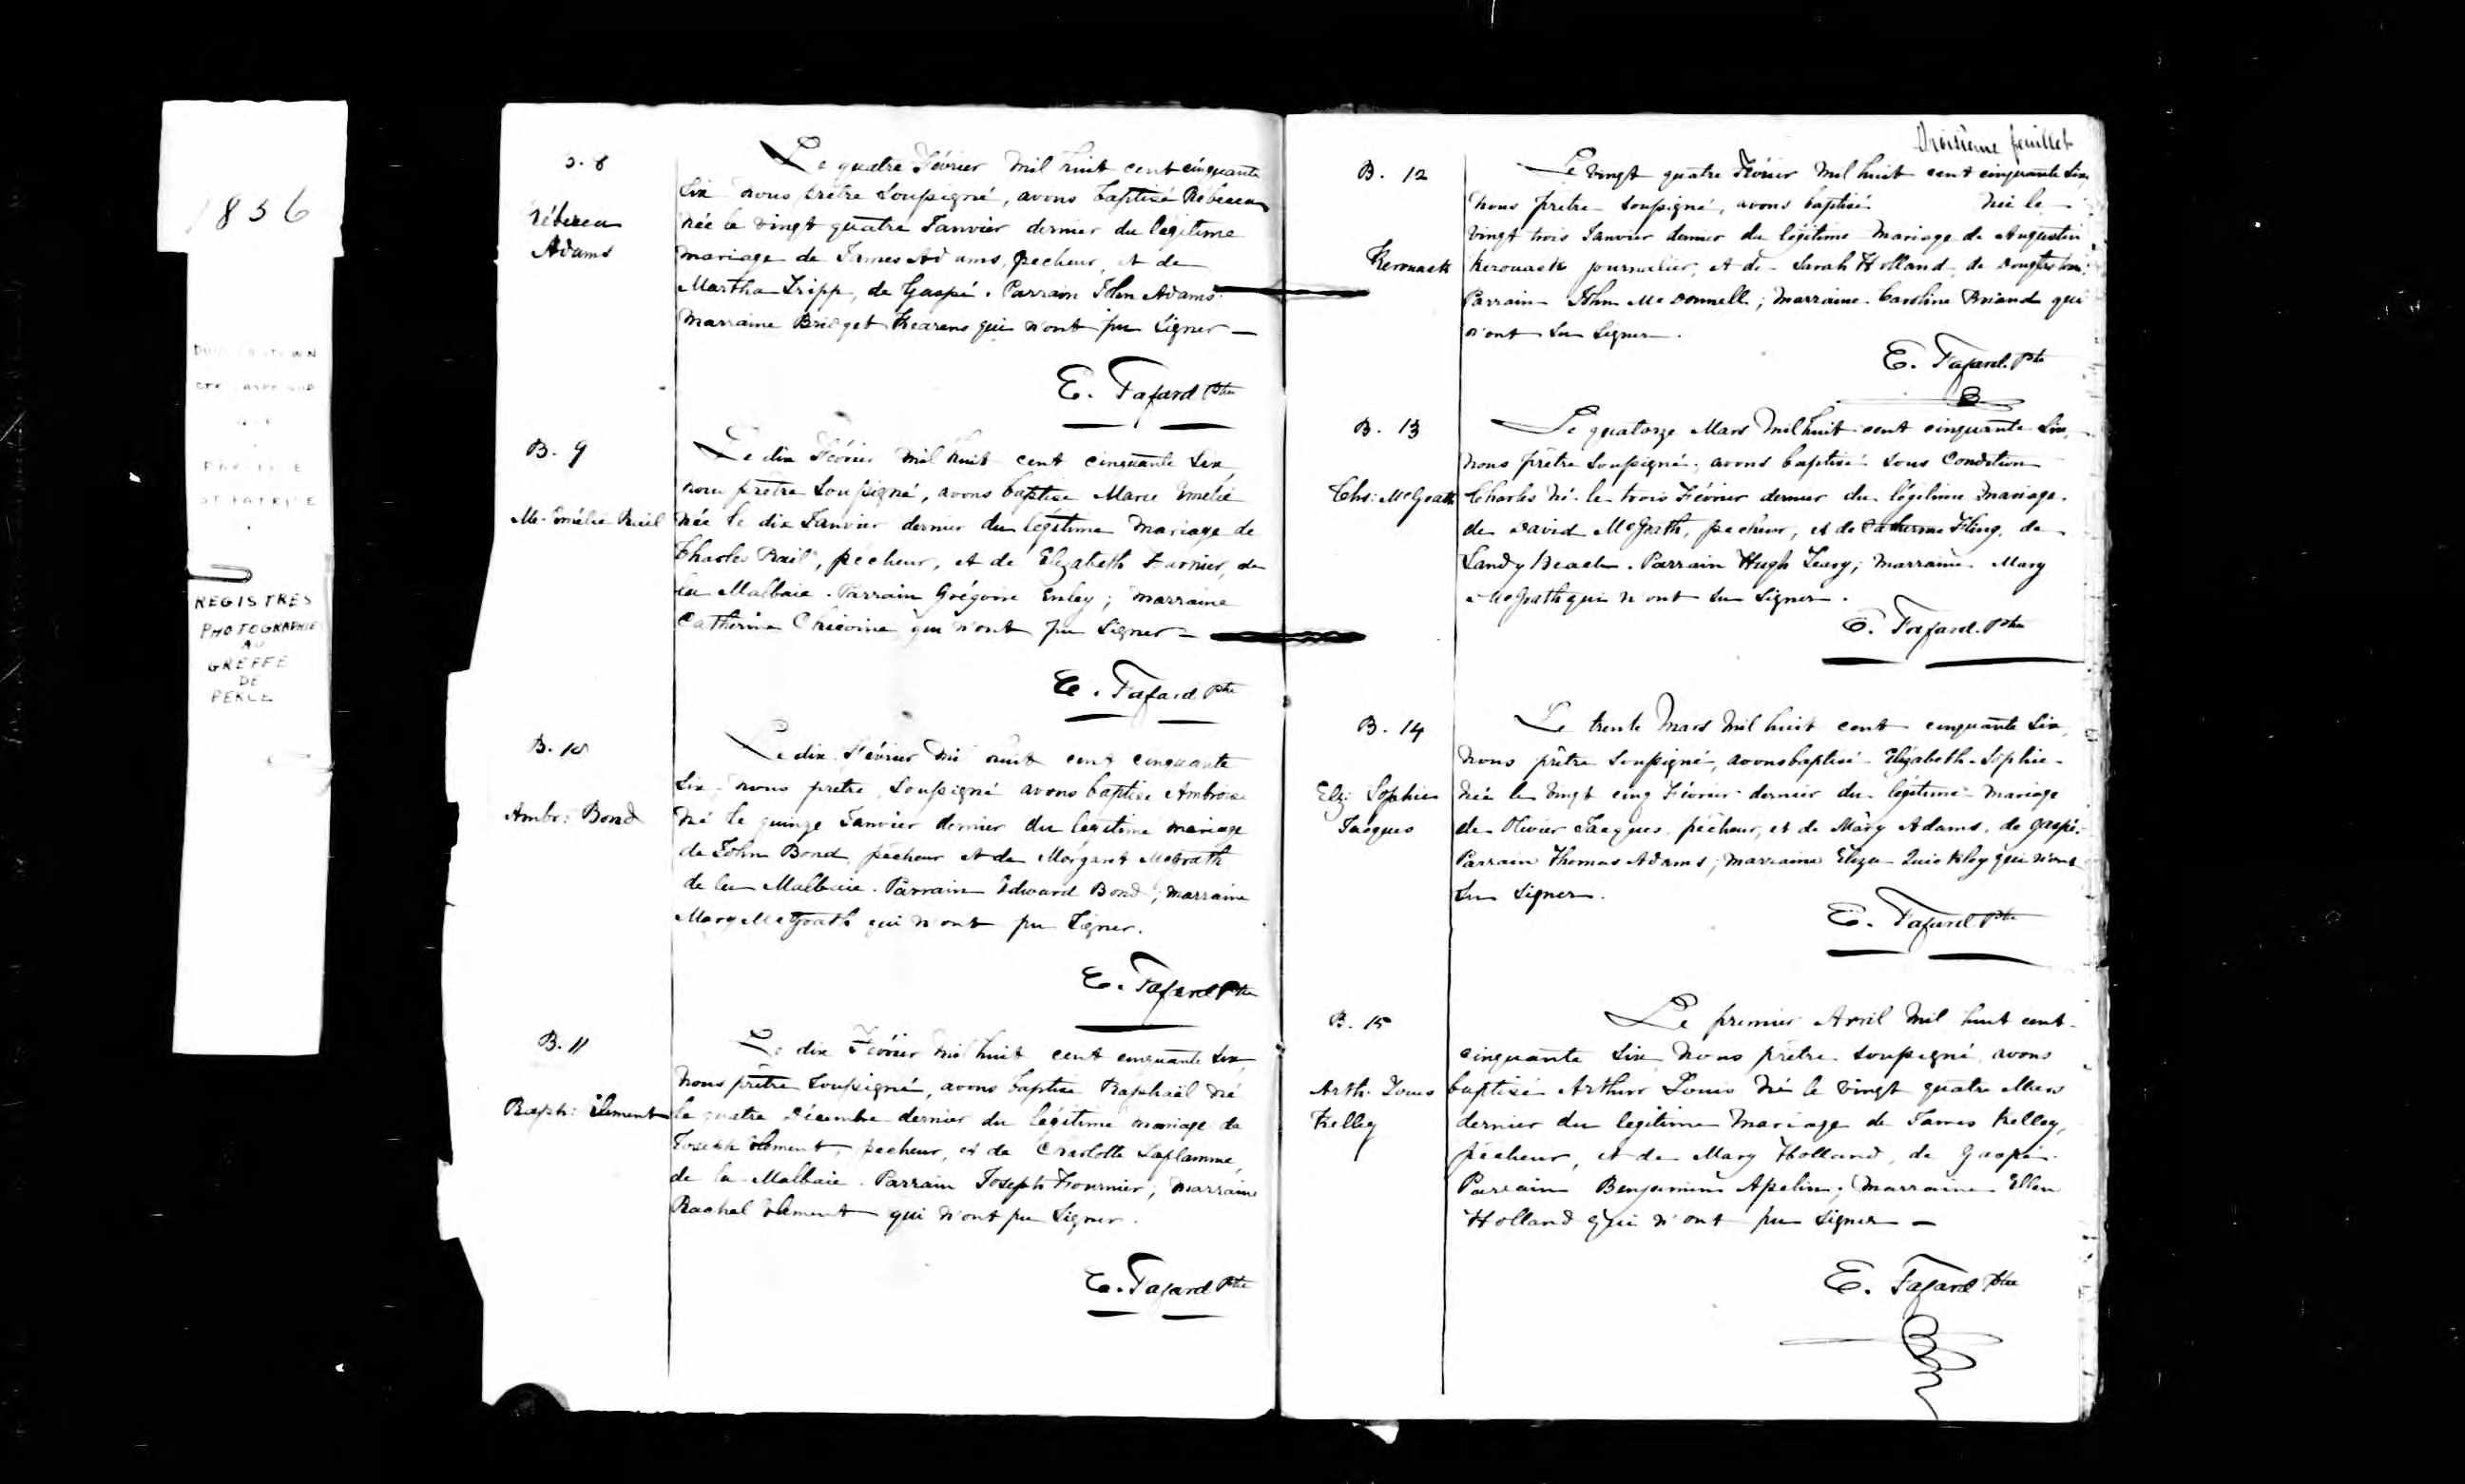 1856
DOUGLASTOWN
CTE GASPE SUD
PAROISSE
ST PATRICE
REGISTRES
PHOTOGRAPHIE
AU
GREFFE
DE
PERCE
B. 8
Rébecca
Adams
Le quatre Février mil huit cent cinquante
six nous prêtre soussigné, avons baptisé Rébecca
née le vingt quatre Janvier dernier du légitime
mariage de James Adams, pecheur, et de
Martha Tripp, de Gaspé. Parrain John Adams.
Marraine Bridget Kearens qui n'ont pu signer —
E. Fafard Ptre
B. 9
Me. Emélie
Le dix Février mil huit cent cinquante six,
nous prêtre soussigné, avons baptisé Marie Emélie
née le dix Janvier dernier du légitime mariage de
Charles Rail, pécheur, et de Elizabeth Fournier, de
la Malbaie. Parrain Grégoire Enley; marraine
Catherine Chicoine qui n'ont pu signer —
E. Fafard Ptre
B. 10
Ambr: Bond
Le dix Février mil huit cent cinquante
six nous prêtre soussigné avons baptisé Ambroise
né le quinze Janvier dernier du légitime mariage
de John Bond, pécheur et de Margaret McGrath
de la Malbaie. Parrain Edward Bond; marraine
Mary McGrath qui n'ont pu signer.
E. Fafard Ptre
B. 11
Raph: Element
Le dix Février mil huit cent cinquante six,
nous prêtre soussigné, avons baptisé Raphaël né
le quatre Décembre dernier du légitime mariage de
Joseph Element, pecheur, et de Charlotte Laflamme,
de la Malbaie. Parrain Joseph Fournier; marraine
Rachel Element qui n'ont pu signer.
E. Fafard Ptre
Troisième feuillet
B. 12
Kerouack
Le vingt quatre Février mil huit cent cinquante six,
nous prêtre soussigné, avons baptisé né le
vingt trois Janvier dernier du légitime mariage de Augustin
Kerouack journalier, et de Sarah Holland, de Douglastown.
Parrain John McDonnell; marraine Caroline Briand qui
n'ont su signer.
E. Fafard. Ptre
B. 13
Chs: McGrath
Le quatorze Mars mil huit cent cinquante six,
nous prêtre soussigné, avons baptisé sous condition
Charles né le trois Février dernier du légitime mariage
de David McGrath, pecheur, et de Catherine Fling, de
Sandy Beach. Parrain Hugh Leary; marraine Mary
McGrath qui n'ont su signer.
E. Fafard. Ptre
B. 14
Elz: Sophie
Jacques
Le trente Mars mil huit cent cinquante six,
nous prêtre soussigné, avons baptisé Elizabeth-Sophie
née le vingt cinq Février dernier du légitime mariage
de Olivier Jacques, pécheur, et de Mary Adams, de Gaspé.
Parrain Thomas Adams; marraine Eliza qui n'ont
su signer.
E. Fafard Ptre
B. 15
Arth. Louis
Kelley
Le premier Avril mil huit cent
cinquante six, nous prêtre soussigné avons
baptisé Arthur Louis né le vingt quatre Mars
dernier du légitime mariage de James Kelley,
pécheur, et de Mary Holland, de Gaspé.
Parrain Benjamin Apelin; marraine Ellen
Holland qui n'ont pu signer —
E. Fafard Ptre